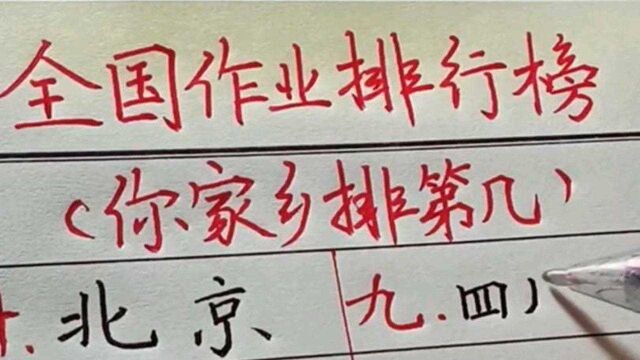 全国作业排行榜
(你家乡排第几)
十.北京 九.四